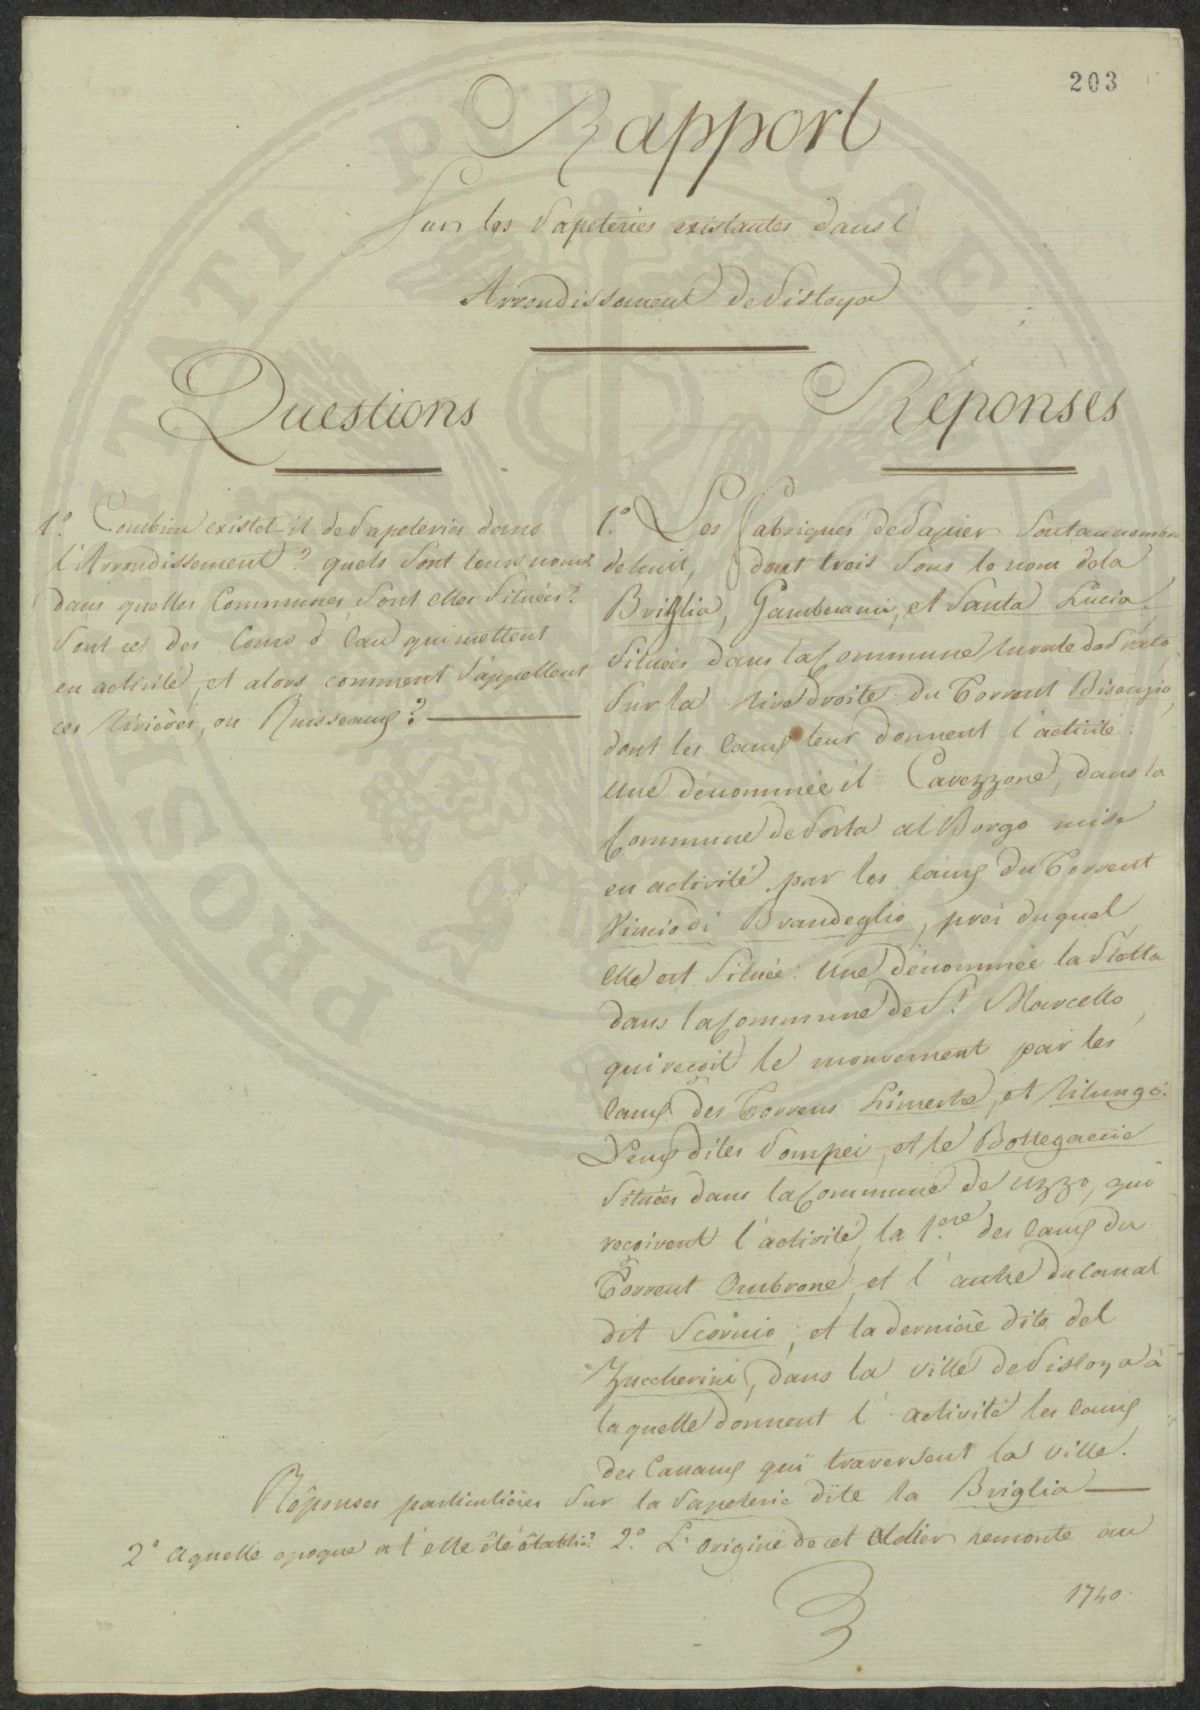 203
Rapport
Sur les Papeteries existantes dans l'
Arrondissement de Pistoya
Questions
1.° Combien existet-il de Papeteries dans
l'Arrondissement? quels sont leurs noms?
dans quelles Communes sont elles situées?
Sont ces des Cours d'Eau qui mettent
en activité, et alors comment s'appellent
ces Rivières, ou Ruisseaux?
Réponses
1.° Les Fabriques de Papier sont au nombre
de huit, dont trois sous le nom de la
Briglia, Gamberaia, et Santa Lucia,
situées dans la Commune rurale de Prato,
sur la rive droite du Torrent Bisenzio,
dont les Eaux leur donnent l'activité:
Une dénommée il Cavezzone, dans la
Commune de Porta al Borgo mise
en activité par les Eaux du Torrent
Vincio di Brandeglio, près du quel
elle est située: Une dénommée la Piotta
dans la Commune de S.t Marcello,
qui reçoit le mouvement par les
Eaux des Torrens Limestre, et Rilungo:
Deux dites Pompei, et le Bottegaccie
situées dans la Commune de Uzzo, qui
reçoivent l'activité, la 1.ere des Eaux du
Torrent Ombrone, et l'autre du Canal
dit Scornio; et la dernière dite del
Zuccherini, dans la ville de Pistoya à
la quelle donnent l'activité les Eaux
des Canaux qui traversent la ville.
Réponses particulières sur la Papeterie dite la Briglia
2.° A quelle epoque at'elle été établie?
2.° L'origine de cet attelier remonte au
1740